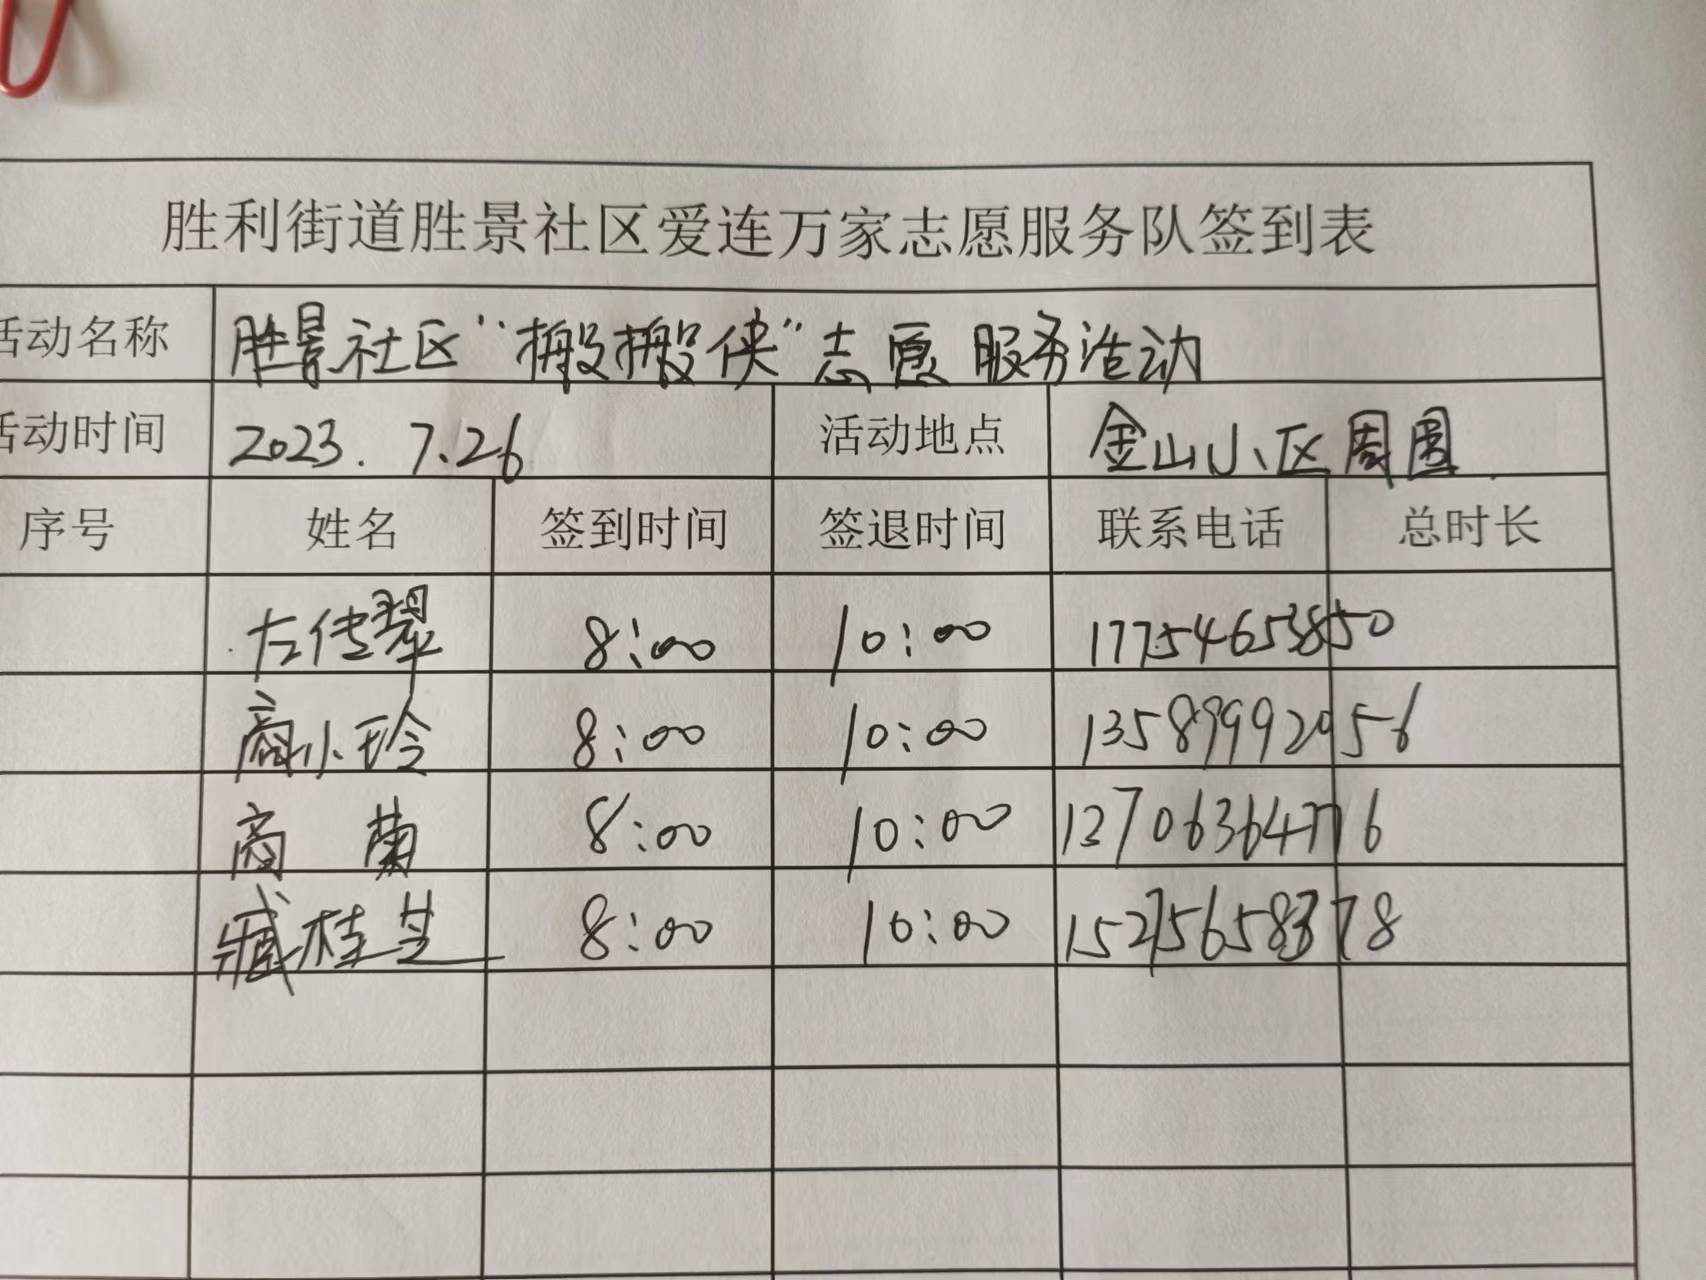 胜利街道胜景社区爱连万家志愿服务队签到表
活动名称 胜景社区“搬搬侠”志愿服务活动
活动时间 2023.7.26 活动地点 金山小区周围
序号 姓名 签到时间 签退时间 联系电话 总时长
左传翠 8:00 10:00 17754653850
商小玲 8:00 10:00 13589992056
商菊 8:00 10:00 13706364776
臧桂芝 8:00 10:00 15275658378